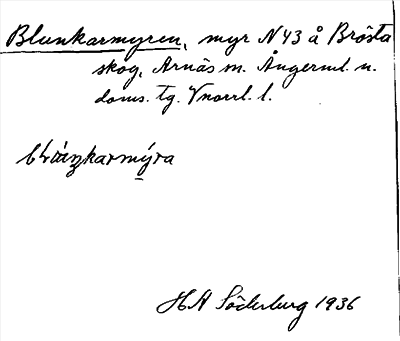 Blunkarmyren, myr N43 å Brösta
skog, Arnäs sn. Ångerml. n.
doms. tg. Vnorrl. l.
H A Söderberg 1936